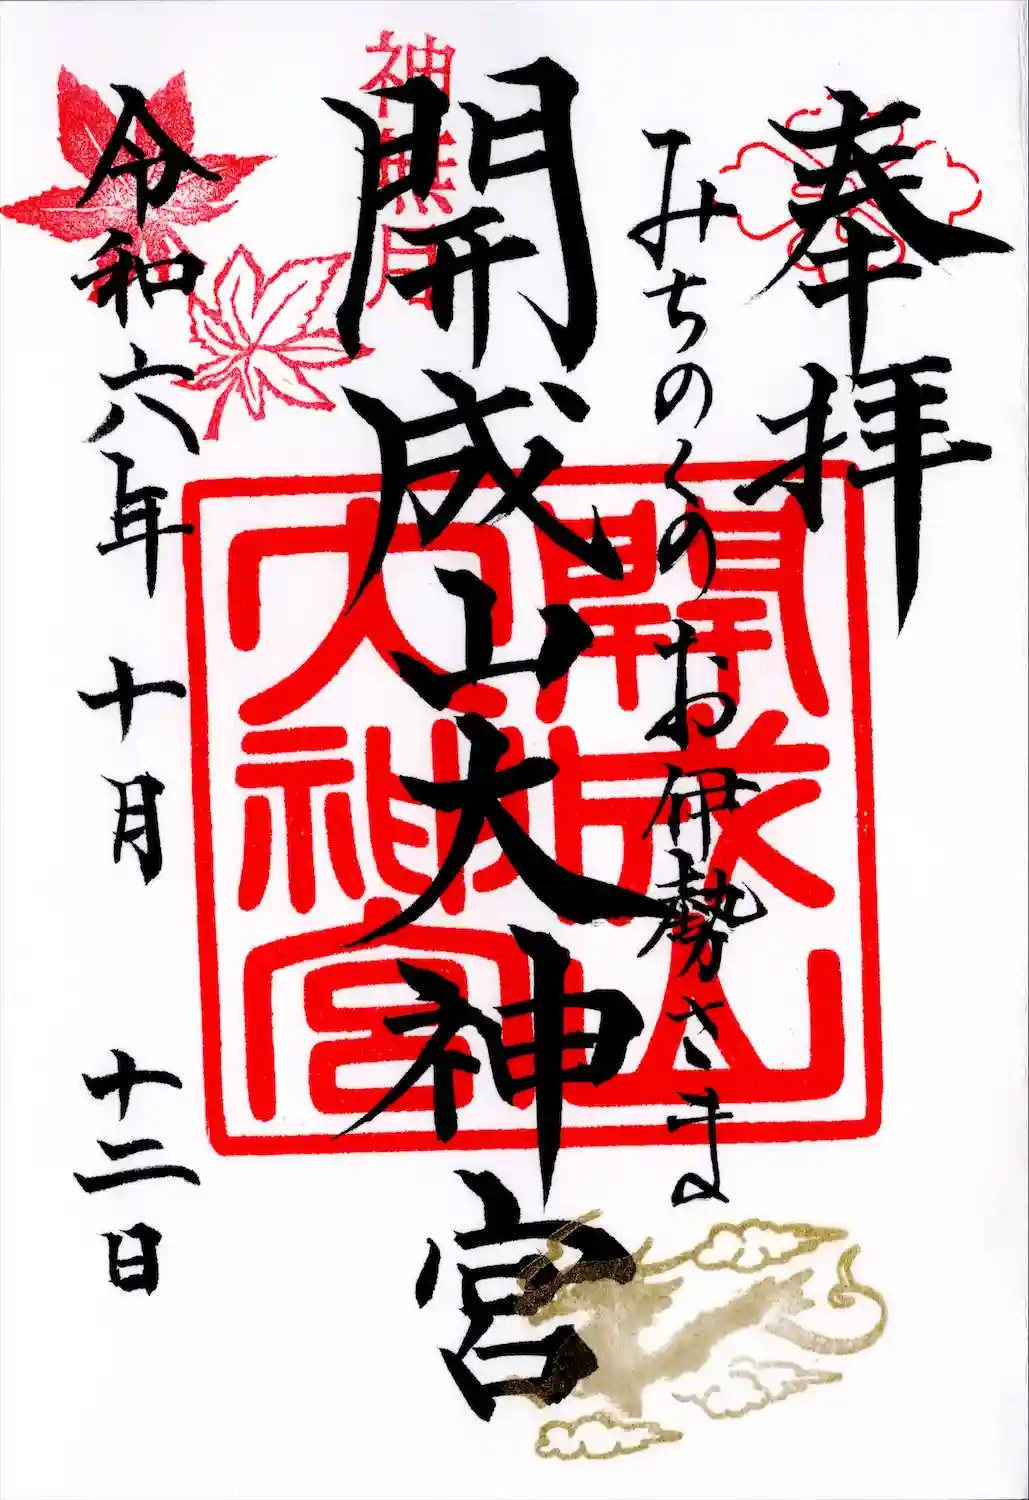 奉拝
みちのくのお伊勢さま
開成山大神宮
神無月
開成山
大神宮
令和六年 十月 十二日